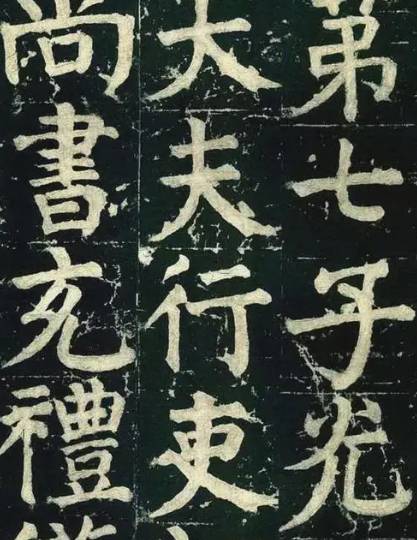 第七子光
大夫行吏
尚書充禮儀